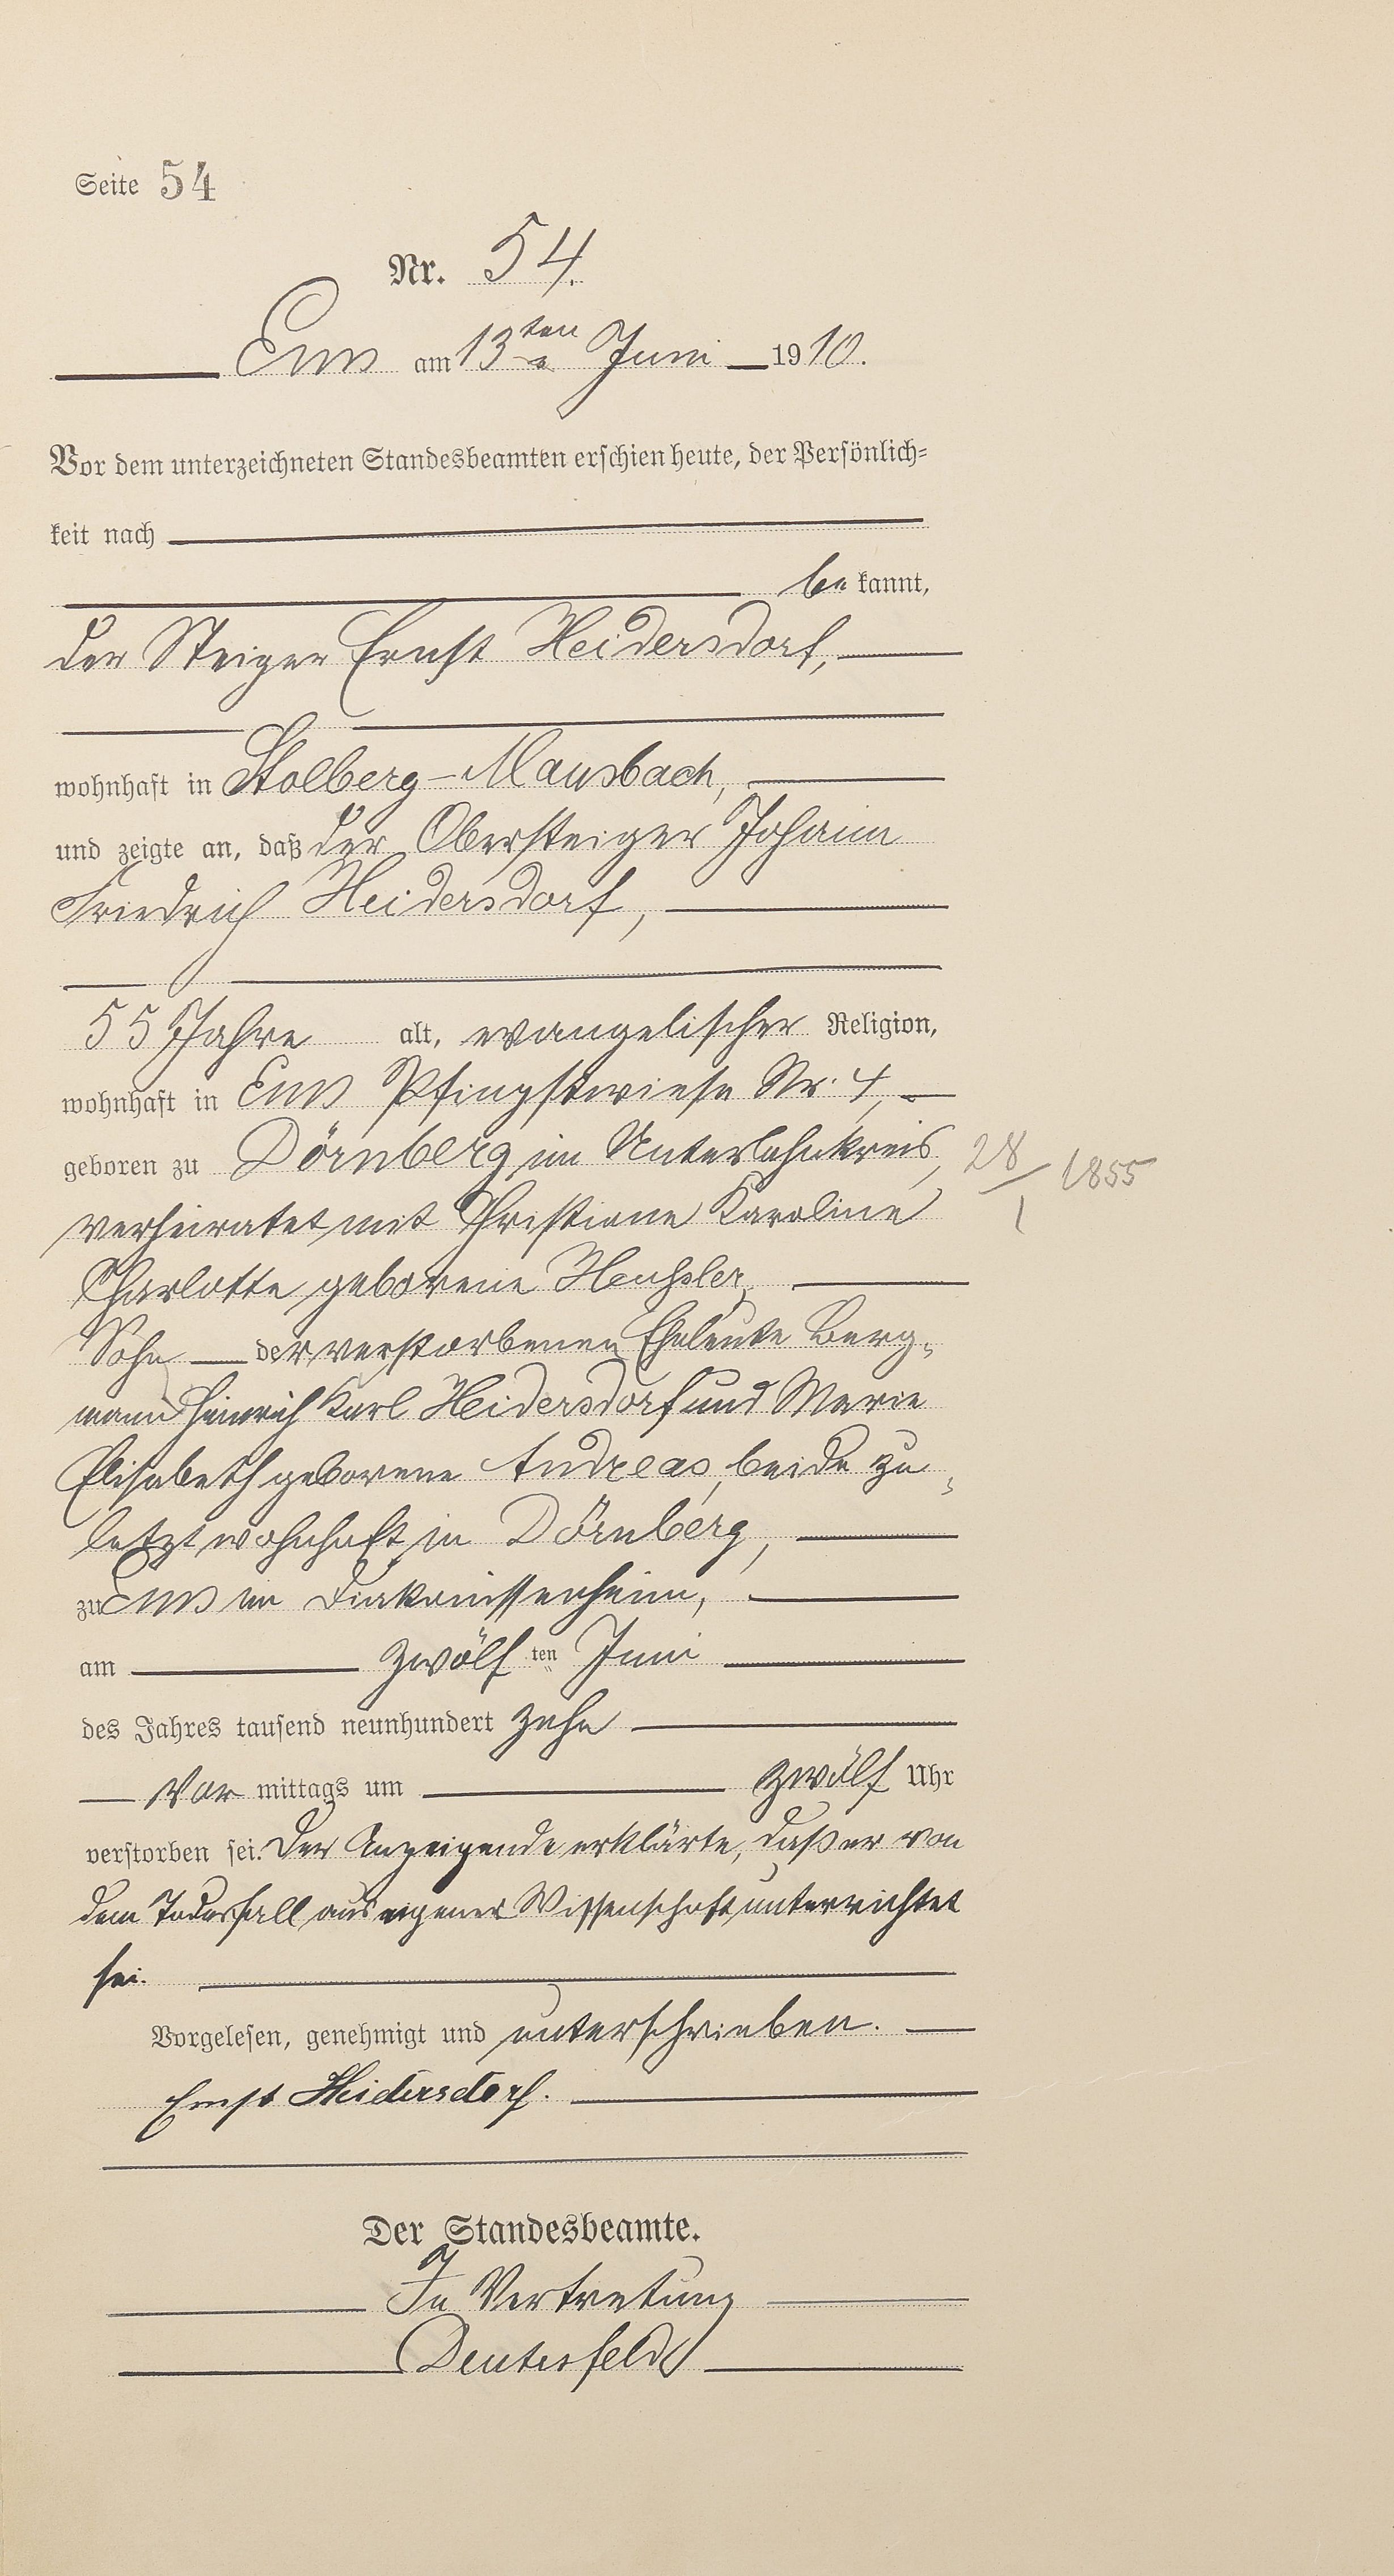 Seite 54
Nr. 54.
Ems am 13ten Juni 1910.
Vor dem unterzeichneten Standesbeamten erschien heute, der Persönlich-
keit nach
be kannt,
der Steiger Ernst Heidersdorf,
wohnhaft in Stolberg-Mausbach,
und zeigte an, daß der Obersteiger Johann
Friedrich Heidersdorf,
55 Jahre alt, evangelischer Religion,
wohnhaft in Ems Pfingstwiese Nr. 4,
geboren zu Dörnberg im Unterlahnkreis, 28/1 1855
verheiratet mit Christiane Karoline
Charlotte geborene
Sohn der verstorbenen Eheleute Berg-
mann Heinrich Karl Heidersdorf und Marie
Elisabeth geborene Andreas, beide zu-
letzt wohnhaft in Dörnberg,
zu Ems im Diakonissenheim,
am zwölf ten Juni
des Jahres tausend neunhundert zehn
Vor mittags um zwölf Uhr
verstorben sei. Der Anzeigende erklärte, daß er von
dem Todesfall aus eigener Wissenschaft unterrichtet
sei.
Vorgelesen, genehmigt und unterschrieben.
Ernst Heidersdorf.
Der Standesbeamte.
In Vertretung